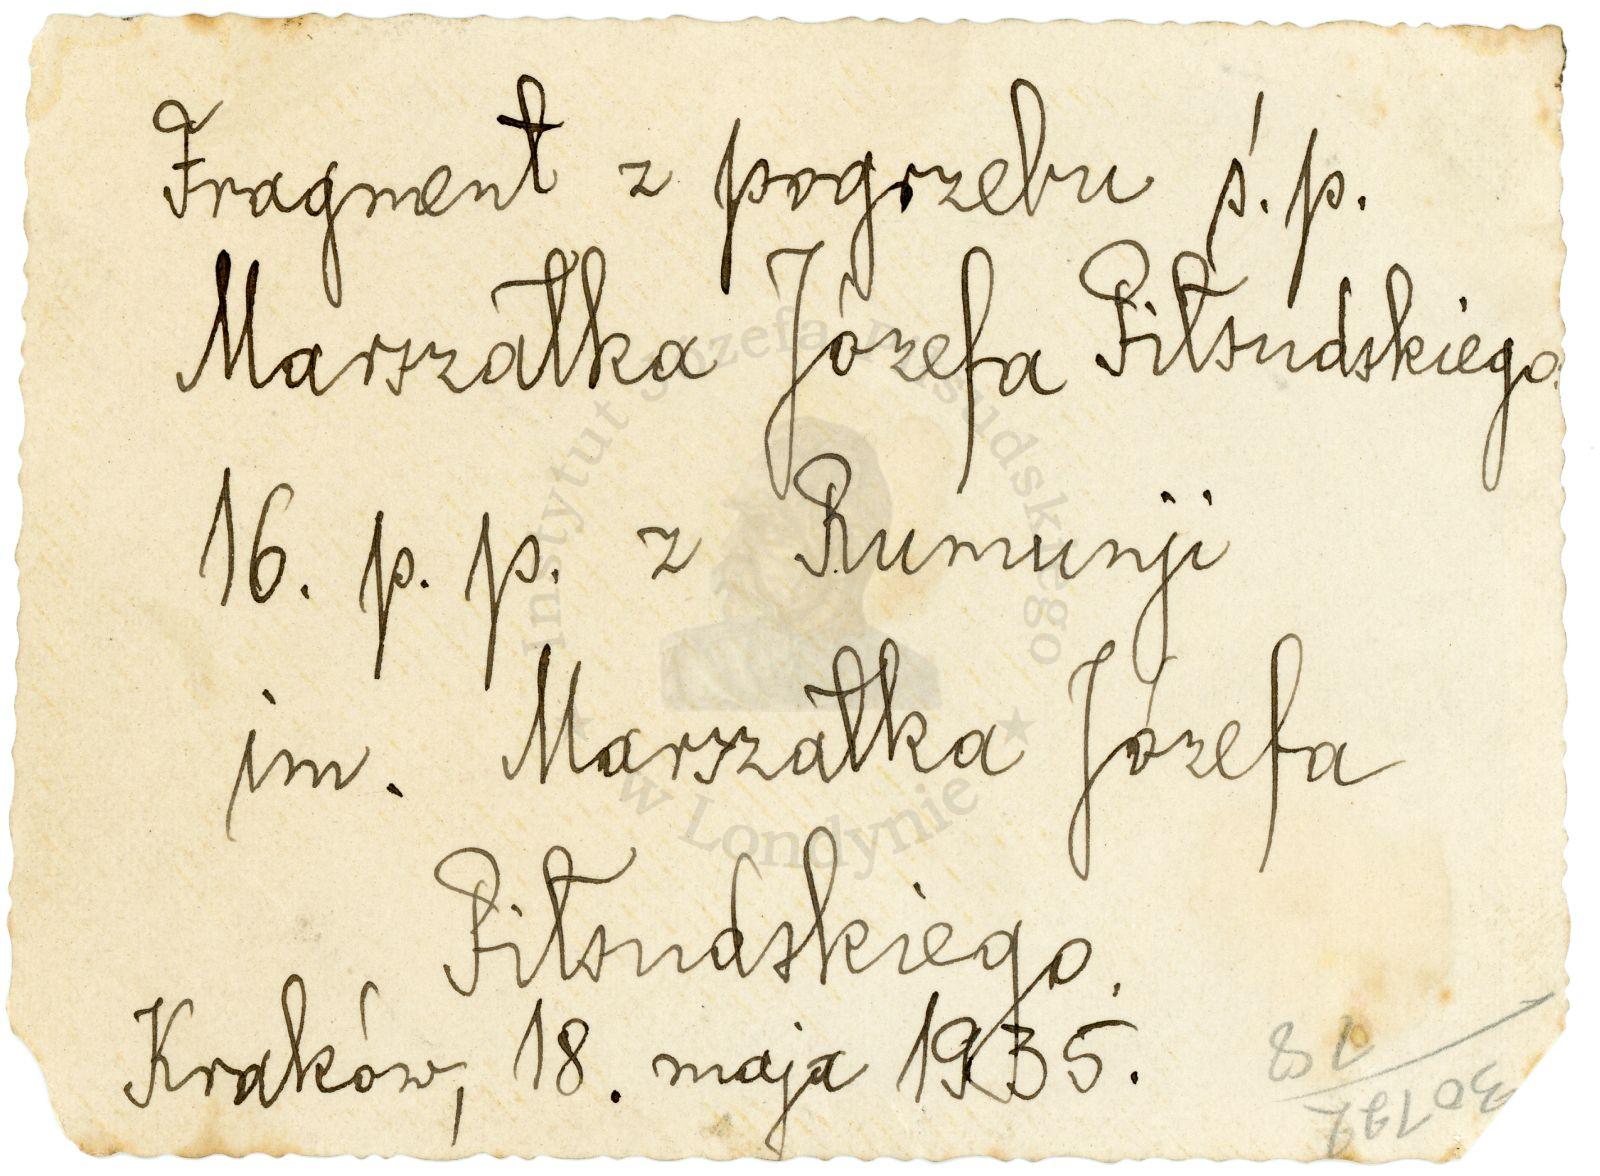 Fragment z pogrzebu ś.p.
Marszałka Józefa Piłsudskiego.
16. p. p. z Rumunji
im. Marszałka Józefa
Piłsudskiego.
Kraków, 18. maja 1935.
Instytut Józefa Piłsudskiego
w Londynie